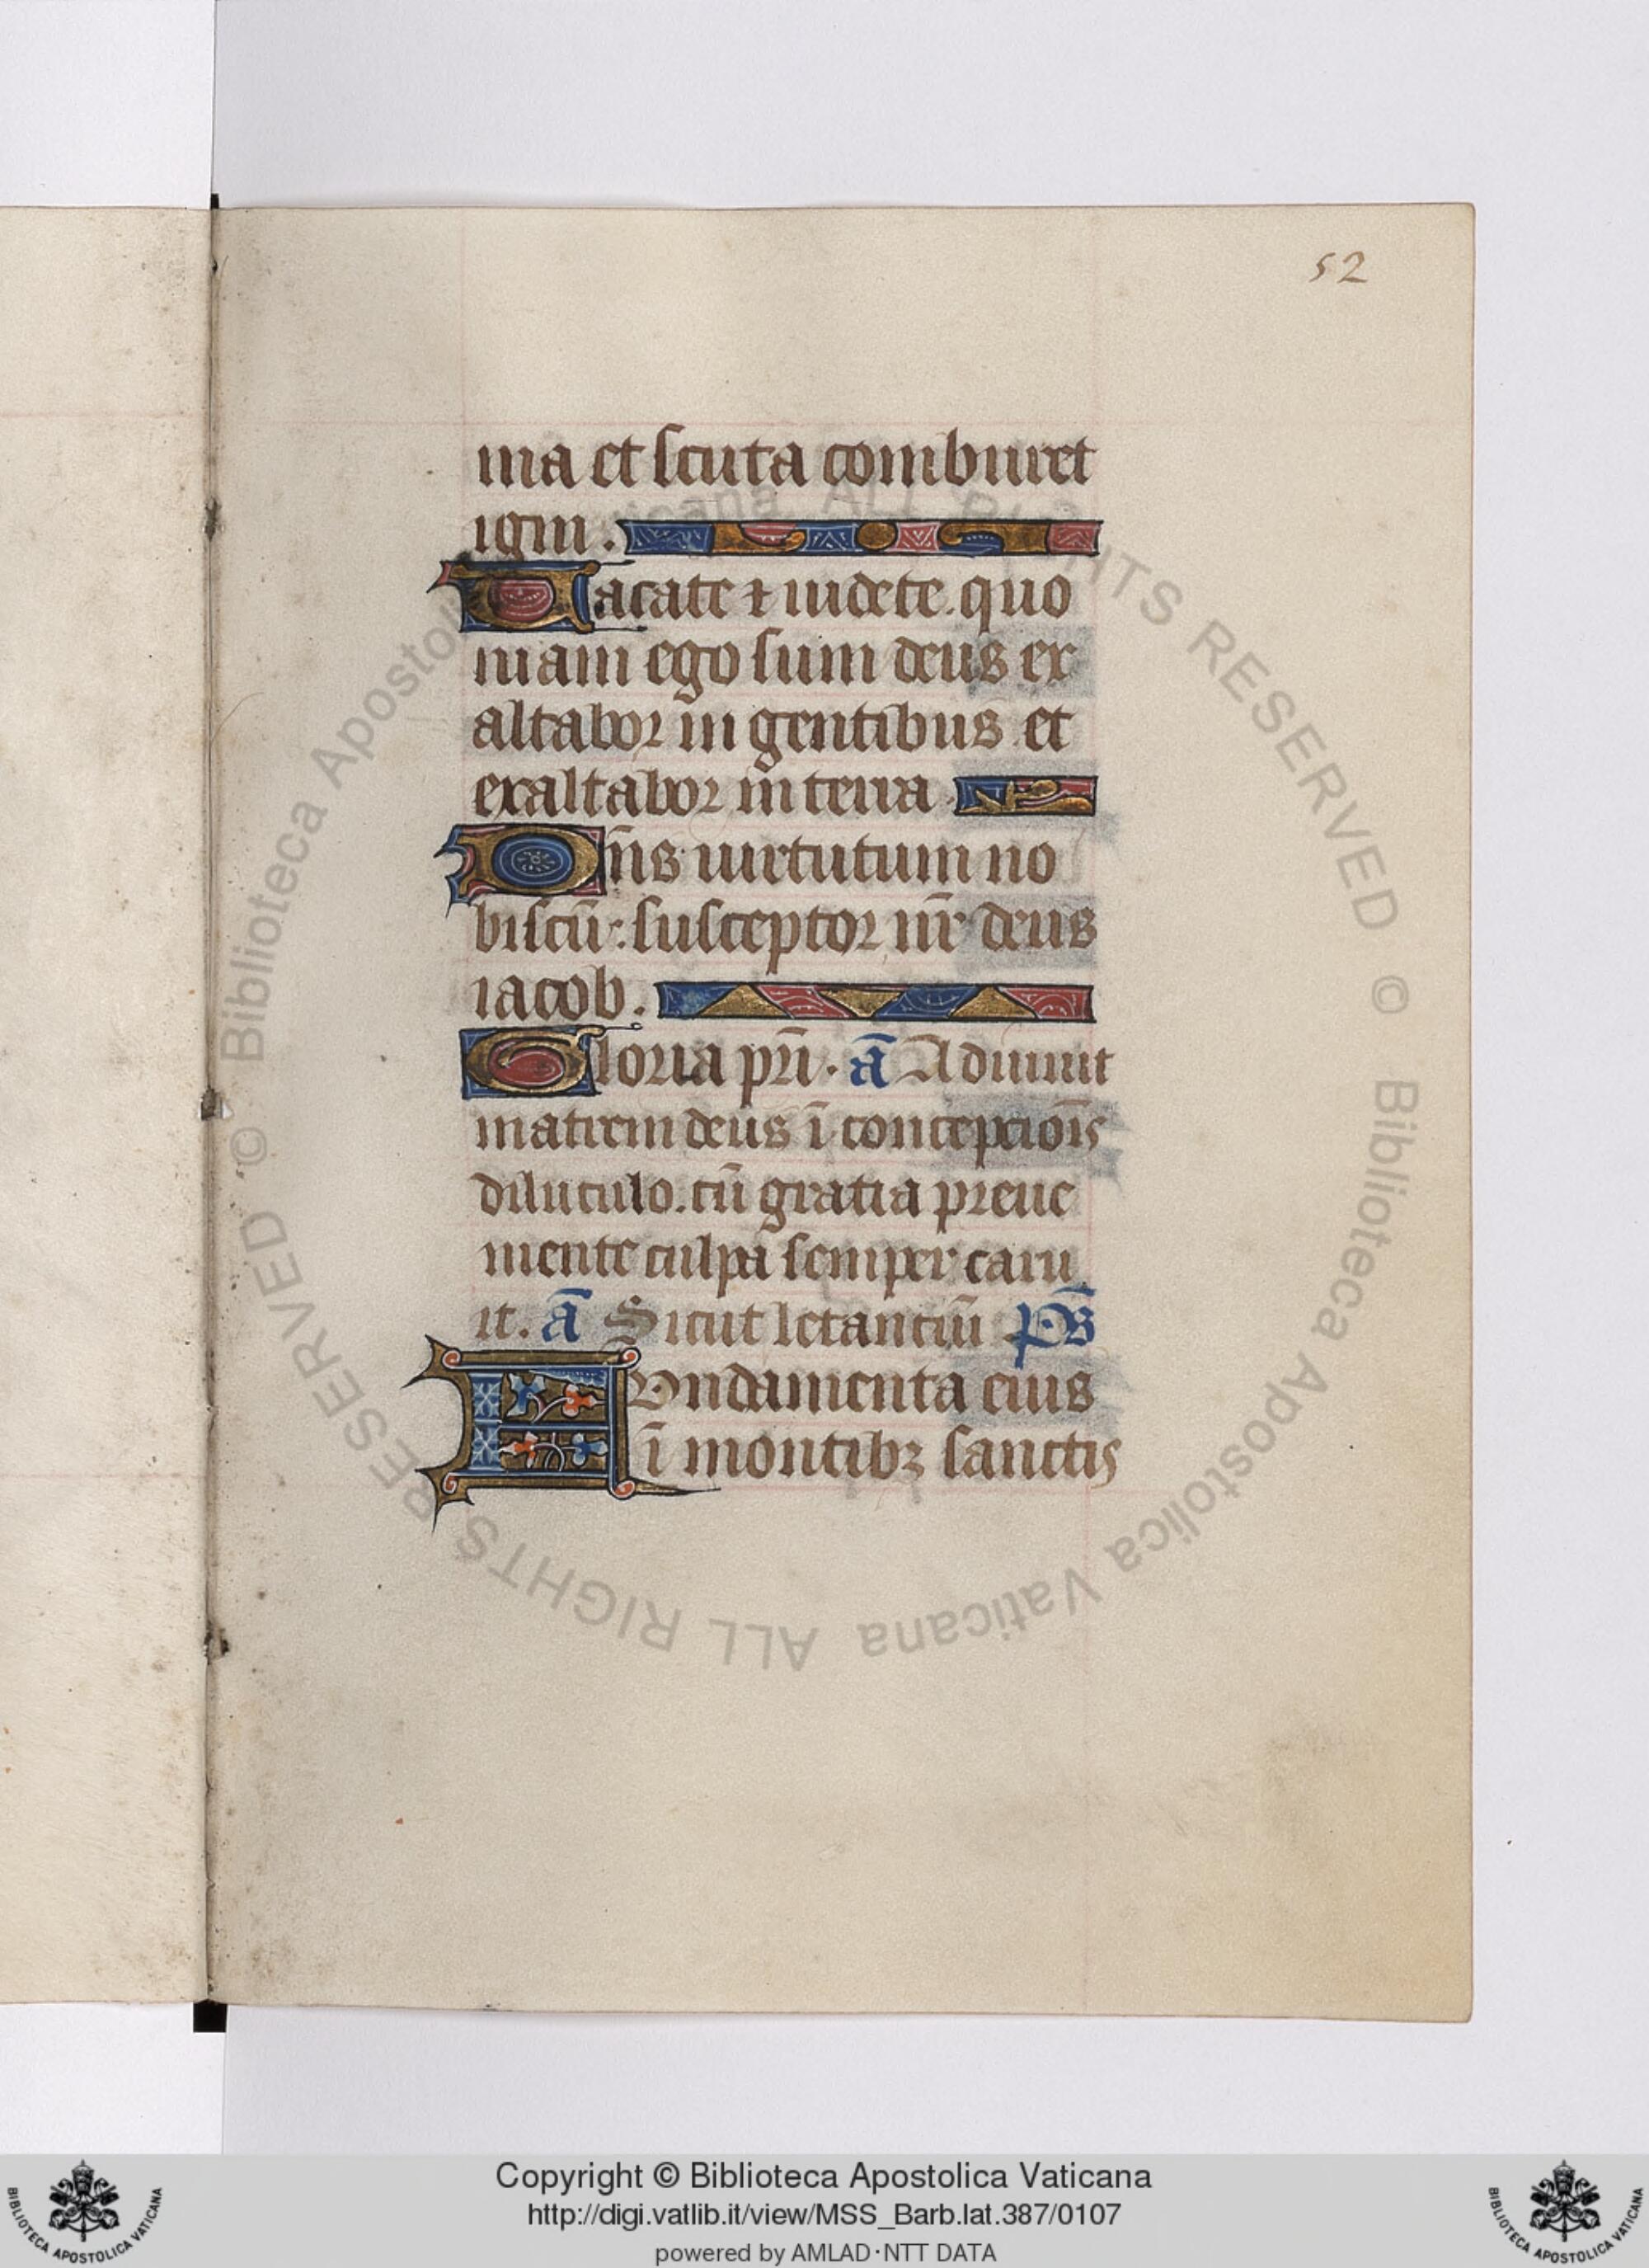 52
ma et scuta comburet
igni.
Uacate ⁊ uidete. quo
niam ego sum deus ex
altabor in gentibus et
exaltabor in terra.
Dn̄s uirtutum no
biscū: susceptor nr̄ deus
iacob.
Gloria pr̄i. ā Adiuuit
matrem deus ī conceptiōīs
diluculo. cū gratia preue
niente culpā semper caru
it. ā Sicut letantiū Ps̄
Fundamenta eius
ī montibꝫ sanctis
© Biblioteca Apostolica Vaticana ALL RIGHTS RESERVED © Biblioteca Apostolica Vaticana ALL RIGHTS RESERVED
Copyright © Biblioteca Apostolica Vaticana
http://digi.vatlib.it/view/MSS_Barb.lat.387/0107
powered by AMLAD·NTT DATA
BIBLIOTECA APOSTOLICA VATICANA
BIBLIOTECA APOSTOLICA VATICANA